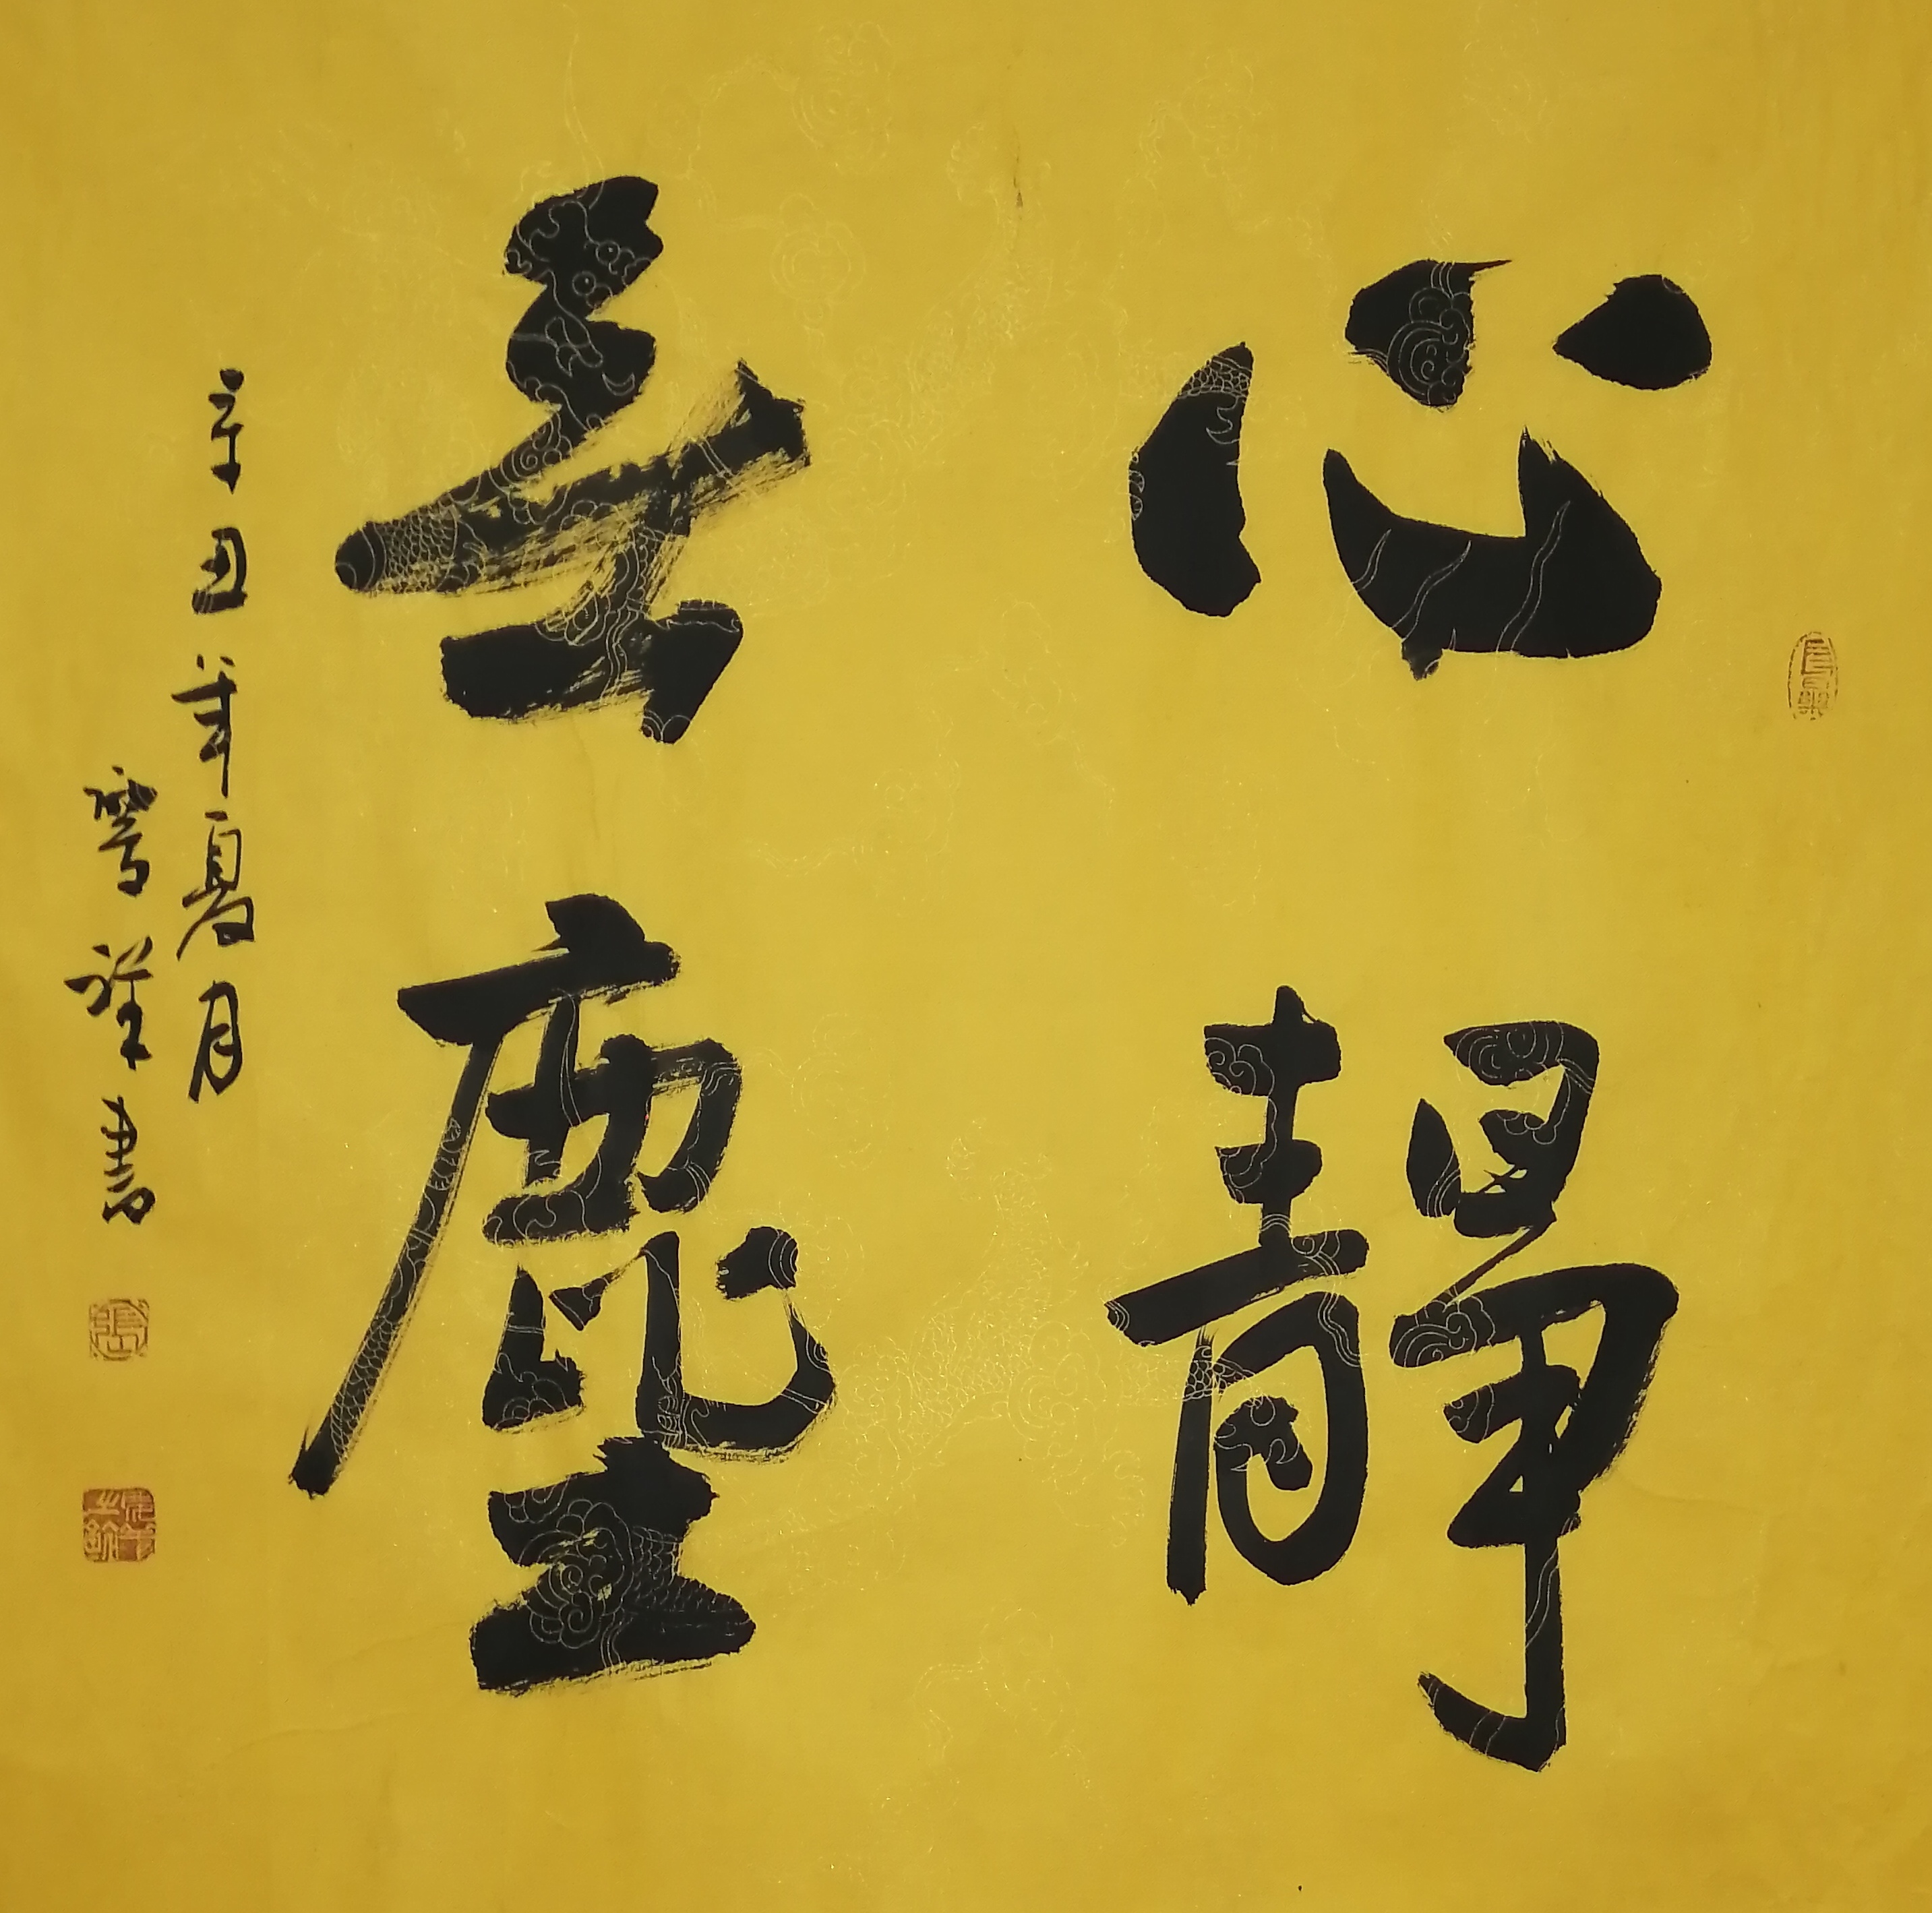 心靜
無塵
辛丑年夏月
雪祥書